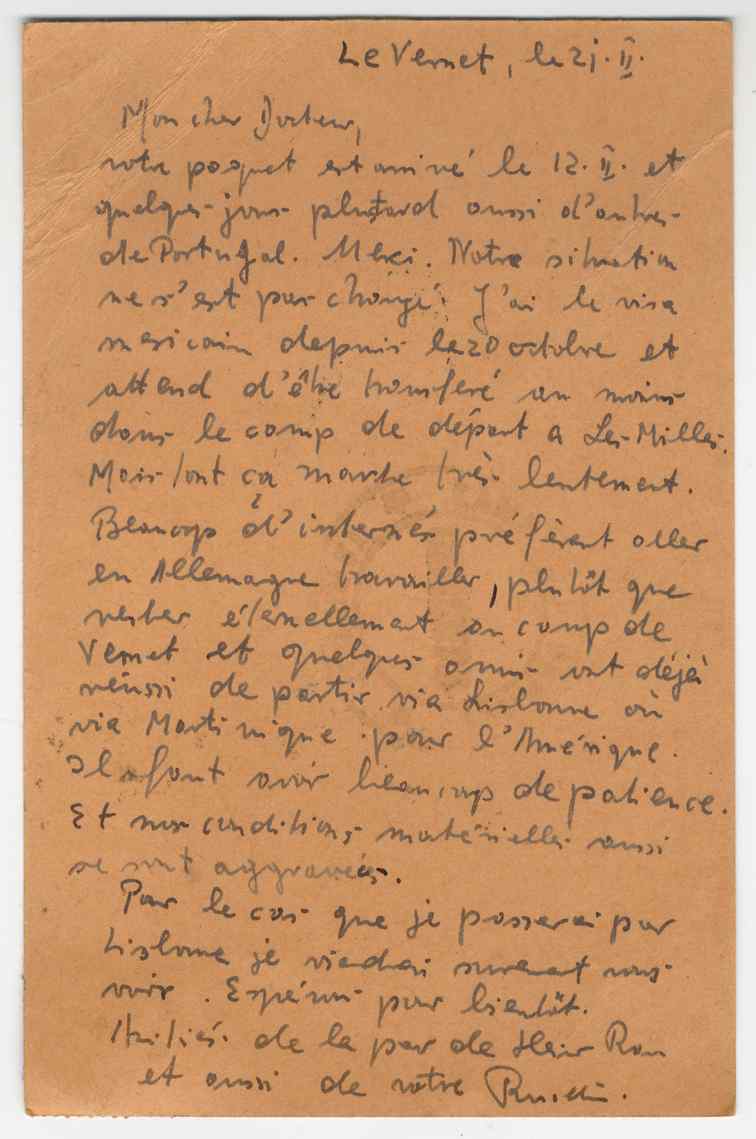 Le Vernet, le 21. II.
Mon cher Docteur,
votre paquet est arrivé le 12. II. et
quelques jours plustard aussi d'autres
de Portugal. Merci. Notre situation
ne s'est pas changé. J'ai le visa
mexicain depuis le 20 octobre et
attend d'être transféré au moins
dans le camp de départ a Les Milles.
Mais tout ça marche très lentement.
Beaucoup d'internés préfèrent aller
en Allemagne travailler, plutôt que
rester éternellement au camp de
Vernet et quelques amis ont déjà
réussi de partir via Lisbonne où
via Martinique pour l'Amérique.
Il faut avoir beaucoup de patience.
Et nos conditions matérielles aussi
se sont aggravées.
Pour le cas que je passerai par
Lisbonne je viendrai surement vous
voir. Espérons pour bientôt.
Amitiés de la par de
et aussi de votre